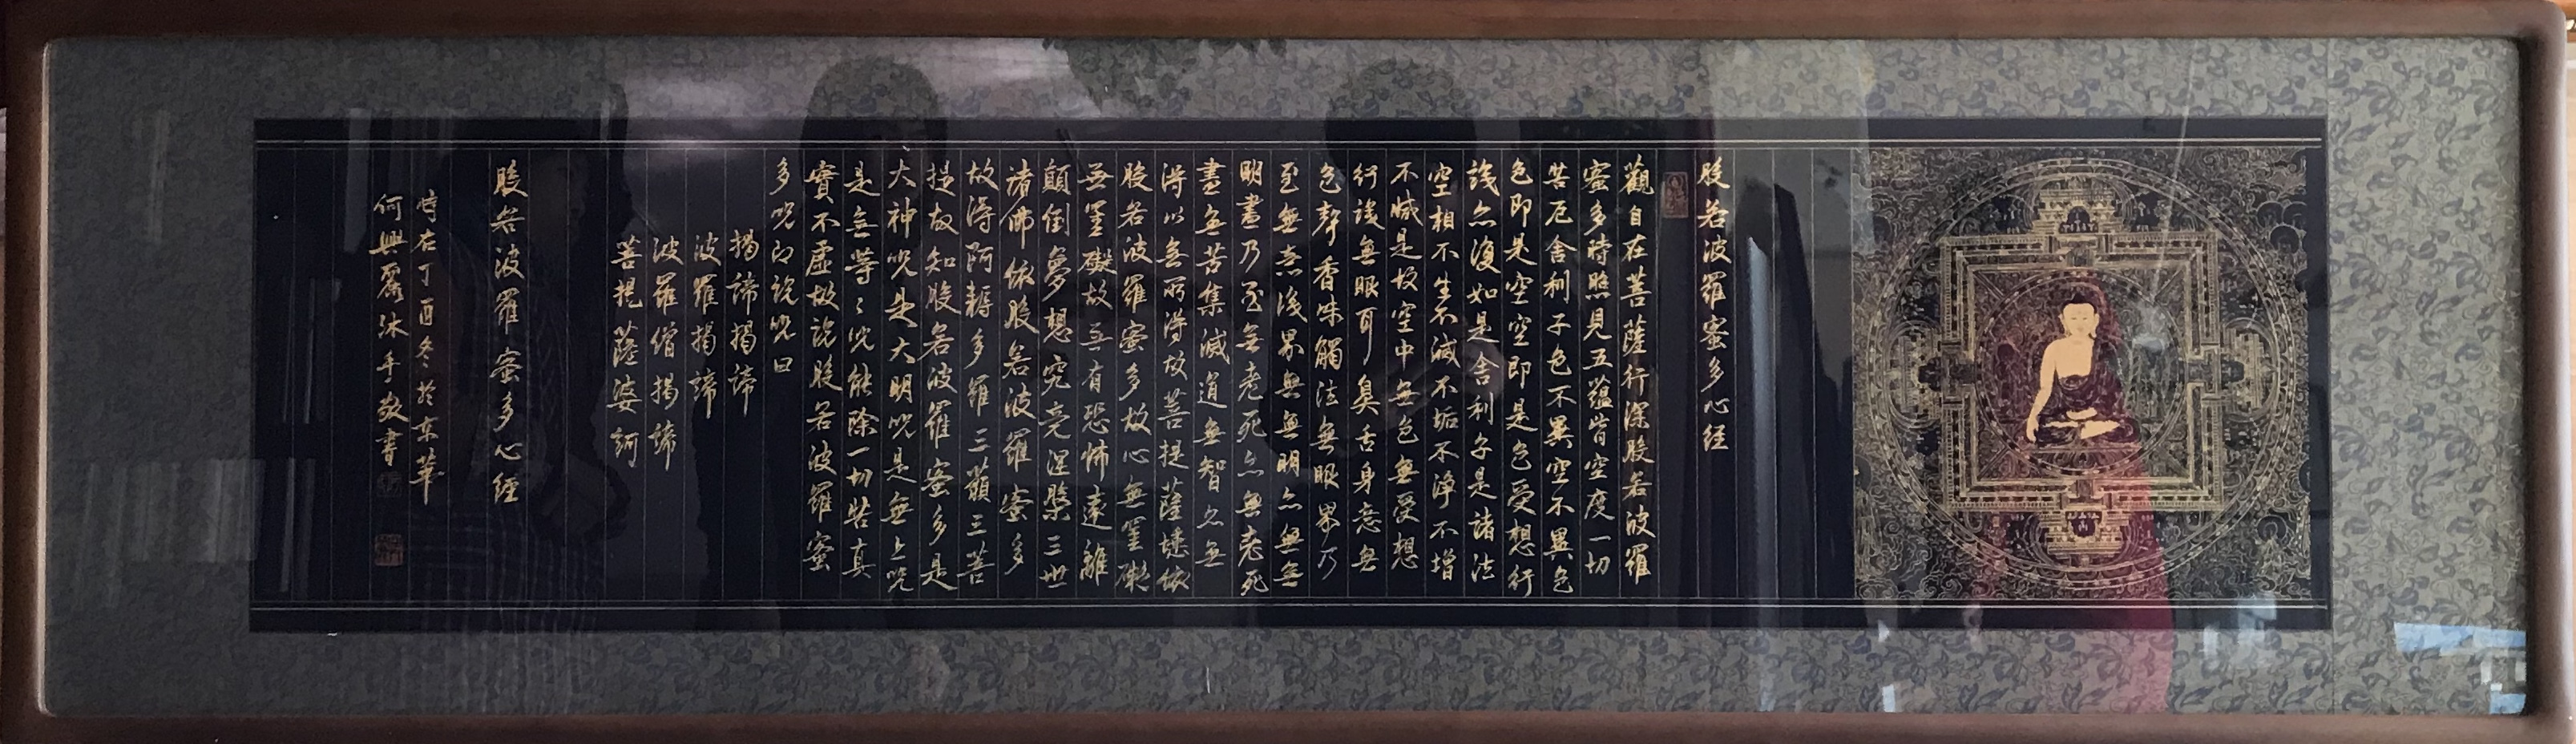 般若波羅蜜多心経
觀自在菩薩行深般若波羅
蜜多時照見五蘊皆空度一切
苦厄舍利子色不異空不異色
色即是空空即是色受想行
識亦復如是舍利子是諸法
空相不生不滅不垢不淨不增
不減是故空中無色無受想
行識無眼耳鼻舌身意無
色聲香味觸法無眼界乃
至無意識界無無明亦無無
明盡乃至無老死亦無老死
盡無苦集滅道無智亦無
得以無所得故菩提薩埵依
般若波羅蜜多故心無罣礙
無罣礙故無有恐怖遠離
顛倒夢想究竟涅槃三世
諸佛依般若波羅蜜多
故得阿耨多羅三藐三菩
提故知般若波羅蜜多是
大神咒是大明咒是無上咒
是無等々咒能除一切苦真
實不虛故說般若波羅蜜
多咒即說咒曰
揭諦揭諦
波羅揭諦
波羅僧揭諦
菩提薩婆訶
般若波羅蜜多心經
時在丁酉冬於東莞
何興麐沐手敬書